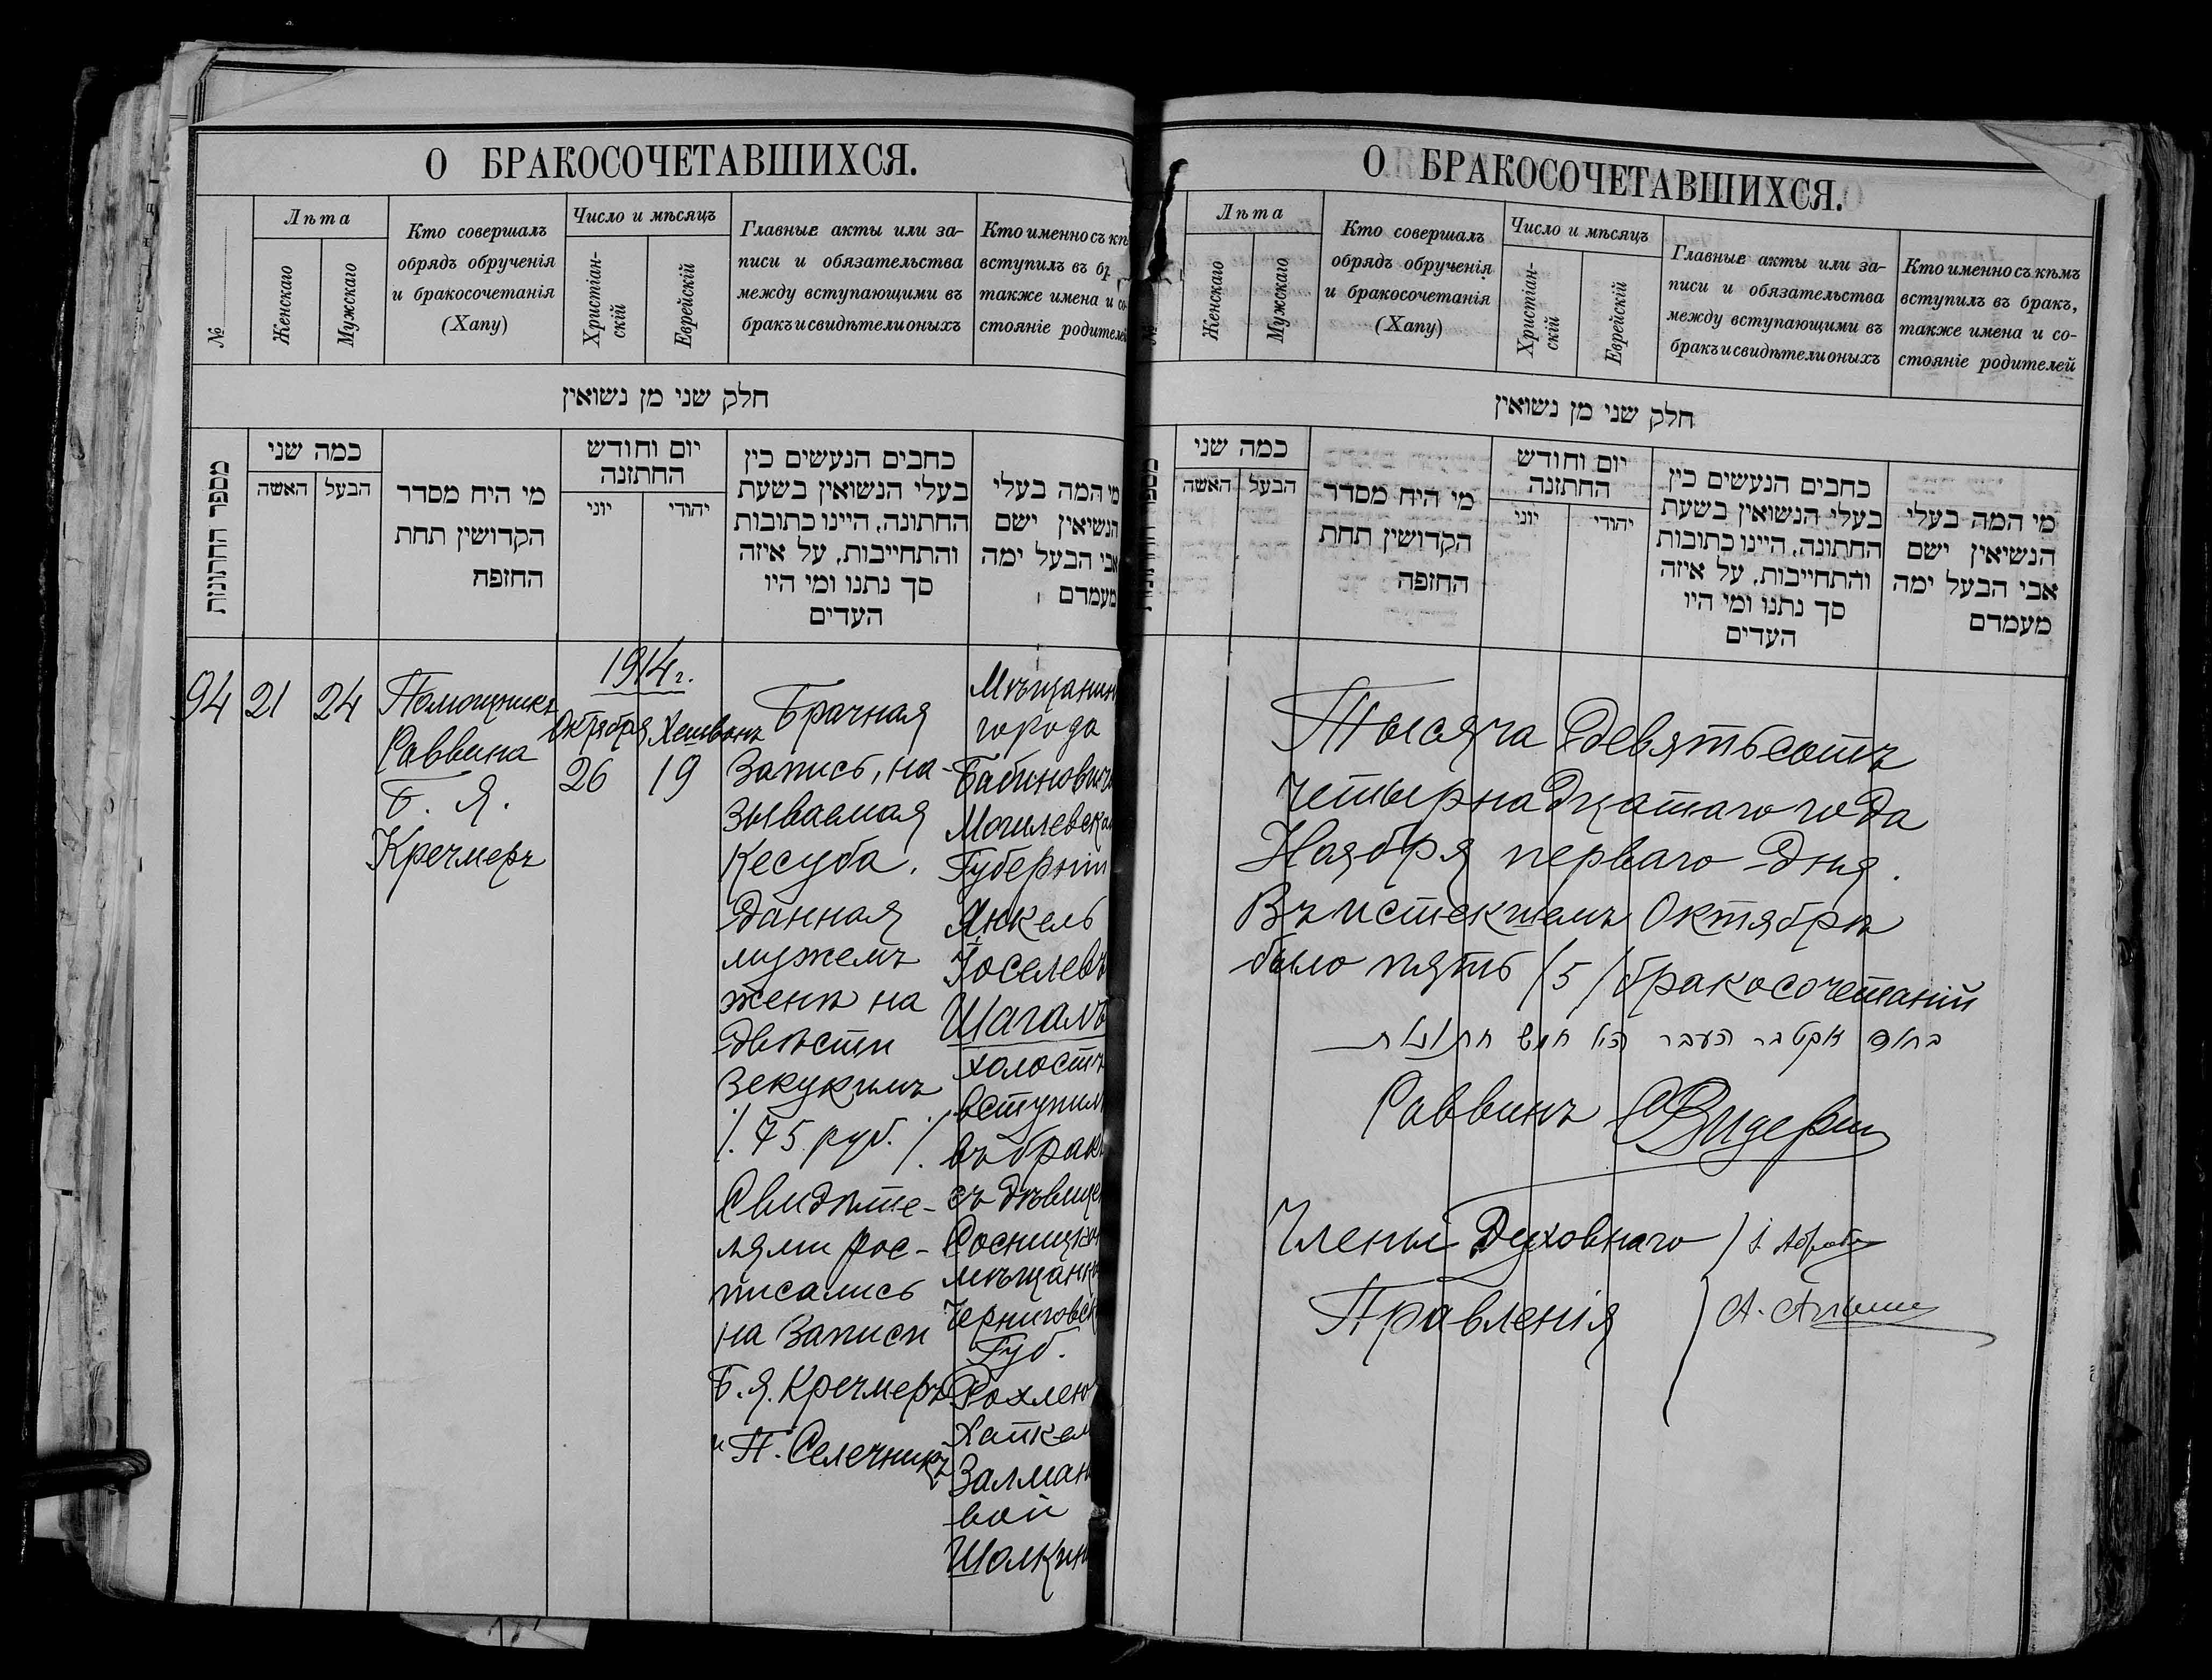 О БРАКОСОЧЕТАВШИХСЯ.
№
Лѣта
Женскаго
Мужскаго
Кто совершалъ
обрядъ обрученія
и бракосочетанія
(Хапу)
Число и мѣсяцъ
Христіан-
скій
Еврейскій
Главные акты или за-
писи и обязательства
между вступающими въ
бракъ и свидѣтели оныхъ
Кто именно съ кѣ
вступилъ въ бр
также имена и со
стояніе родителе
חלק שני מן נשואין
מספר החתונות
כמה שני
האשה
הבעל
מי היח מסדר
הקדושין תחת
החזפח
יום וחודש
החתזנה
יוני
יהודי
כחבים הנעשים כין
בעלי הנשואין בשעת
החתונה, היינו כתובות
והתחייבות, על איזה
סך נתנו ומי היו
העדים
מי המה בעלי
הנשיאין ישם
אבי הבעל ימה
מעמדם
94
21
24
Помощникъ
Раввина
Б. Я.
Кречмеръ
1914 г.
Октября
26
Хешванъ
19
Брачная
Запись, на-
зываемая
Кесуба.
Данная
мужемъ
женѣ на
двѣсти
Зекукимъ
/. 75 руб. /.
Свидѣте-
лями рос-
писались
на Записи
Б. Я. Кречмеръ
и П. Селечникъ
Мѣщанин
города
Бабинович
Могилевской
Губерніи
Янкель
Іоселевъ
Шагалъ
холостъ
вступилъ
въ бракъ
съ дѣвицей
Росницкой
мѣщанкой
Черниговск
Губ.
Рохлею
Хайкел
Залман
вой
Шалкин
О БРАКОСОЧЕТАВШИХСЯ.
№
Лѣта
Женскаго
Мужскаго
Кто совершалъ
обрядъ обрученія
и бракосочетанія
(Хапу)
Число и мѣсяцъ
Христіан-
скій
Еврейскій
Главные акты или за-
писи и обязательства
между вступающими въ
бракъ и свидѣтели оныхъ
Кто именно съ кѣмъ
вступилъ въ бракъ,
также имена и со-
стояніе родителей
חלק שני מן נשואין
כמה שני
האשה
הבעל
מי היח מסדר
הקדושין תחת
החזפה
יום וחודש
החתזנה
יוני
יהודי
כחבים הנעשים כין
בעלי הנשואין בשעת
החתונה, היינו כתובות
והתחייבות, על איזה
סך נתנו ומי היו
העדים
מי המה בעלי
הנשיאין ישם
אבי הבעל ימה
מעמדם
Тысяча девятьсотъ
четырнадцатаго года
Ноября перваго дня.
Въ истекшемъ Октябрѣ
было пять /5/ бракосочетаній
בחודש אקטבר העבר היו חמש חתונות
Раввинъ
Члены Духовнаго
Правленія